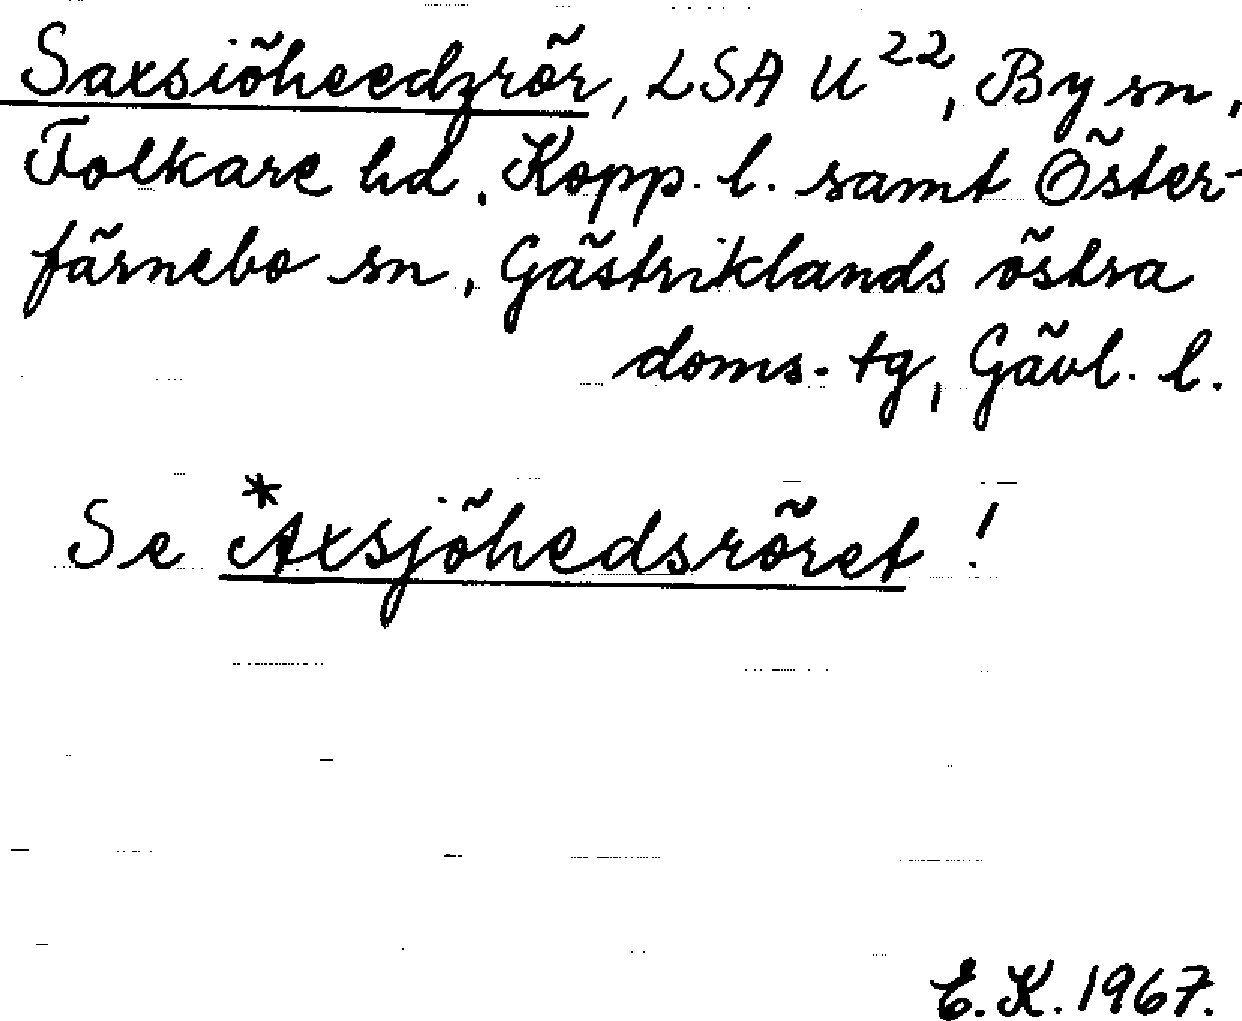 Saxsiöheedzrör, LSA U²², By sn,
Folkare hd, Kopp. l. samt Öster-
färnebo sn, Gästriklands östra
doms. tg, Gävl. l.
Se *Axsjöhedsröret !
E.K. 1967.